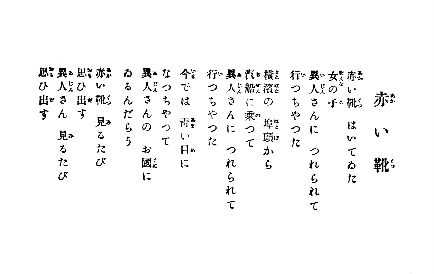 赤い靴
赤い靴 はいてゐた
女の子
異人さんに つれられて
行つちやつた
横濱の 埠頭から
汽船に乘つて
異人さんに つれられて
行つちやつた
今では 青い目に
なつちやつて
異人さんの お國に
ゐるんだらう
赤い靴 見るたび
思ひ出す
異人さん 見るたび
思ひ出す